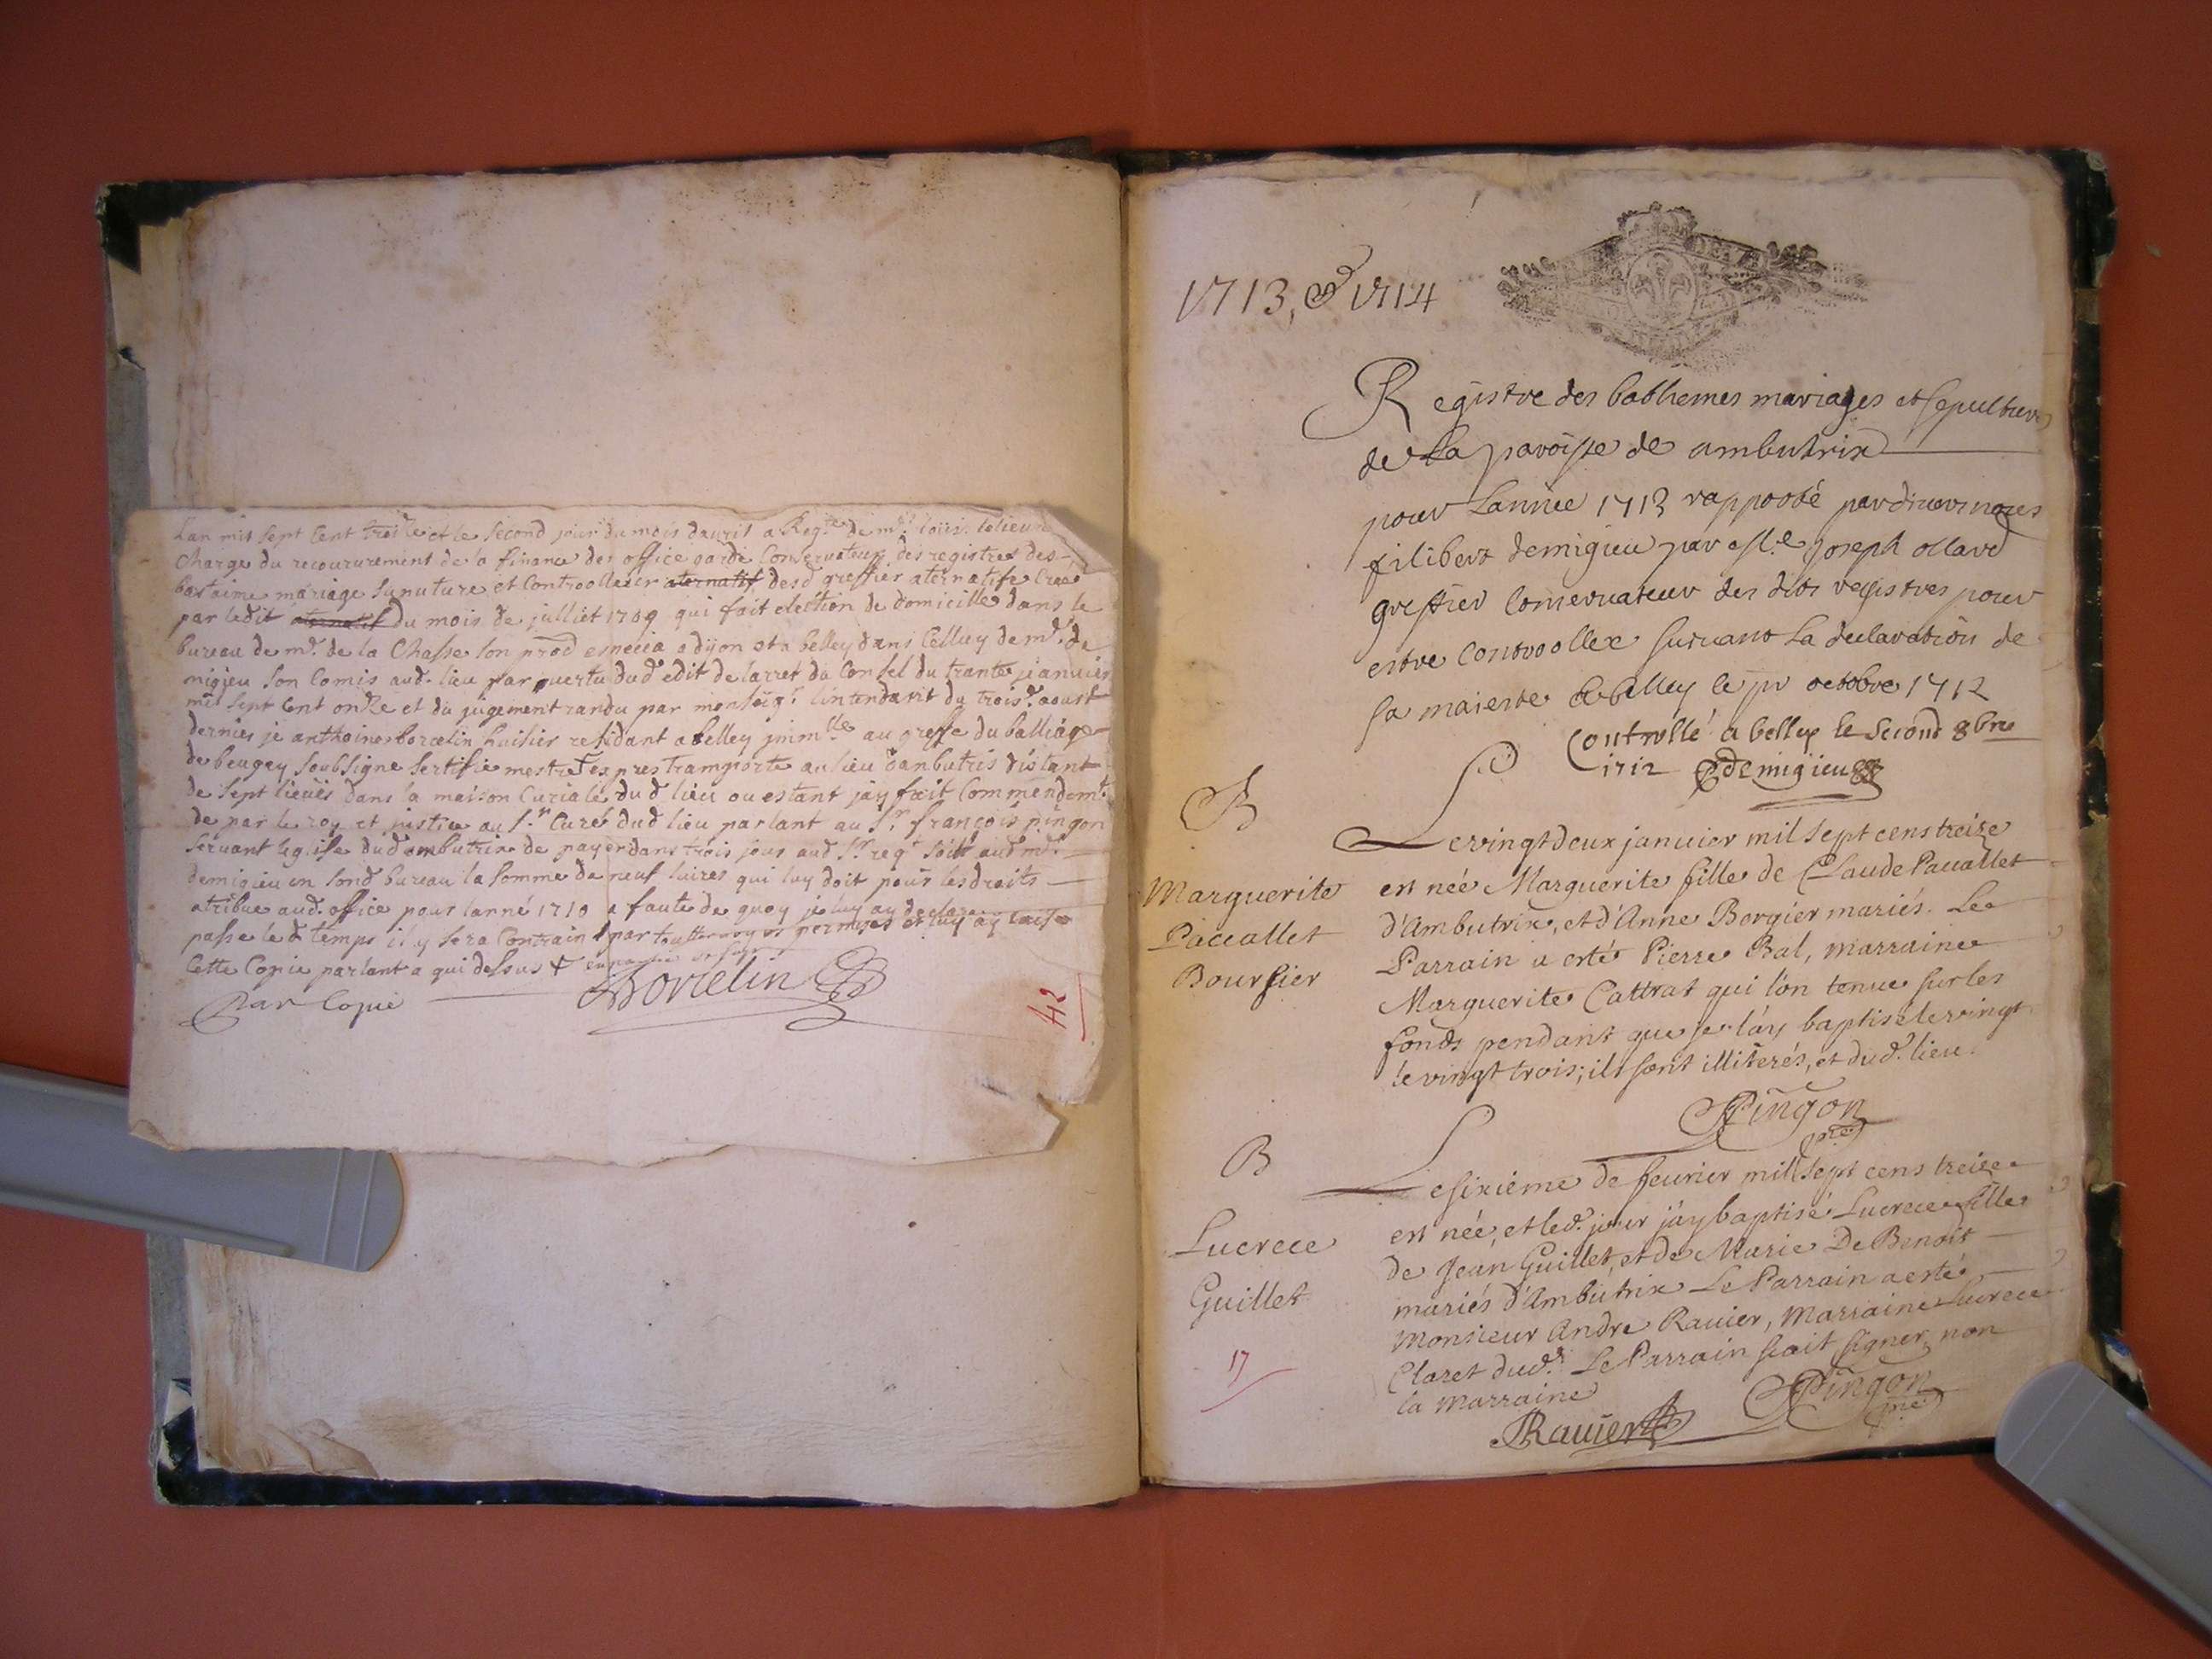 Lan mil sept cent treise et le second jour du mois davril a Reqte de mr. loüis lelieur
Charge du recouvrement de la finance des office garde Conservateur des registres des
bataime mariage sepulture et Controolleur aternatif desd greffier aternatife Créé
par ledit aternatif du mois de julliet 1709 qui fait eléction de domicille dans le
bureau de mr. de la Chasse son prod a dijon et a belley dans Celluy de mr. de
migieu son Comis aud. lieu par vertu dud edit de larret du Consel du trante januier
mil sept cent onze et du jugement randu par monseigr lintendant du trois. aoust
dernier je anthoine borcelin huisier residant a belley immlle au greffe du balliage
de beugey soubsigne sertifie mestre expres tramporte au lieu danbutris distant
de sept lieües dans la maison Curiale dud lieu ou estant jay fait Commendemt
de par le roy et justice au Sr Curé dud lieu parlant au Sr françois pingon
servant leglise dud ambutrix de payer dans trois jour aud Sr reqt soitt aud mr
demigieu en sond bureau la somme de neuf liures qui luy doit pour les droits
atribue aud. office pour lanné 1710 a faute de quoy je luy ay declare
passe led temps il y sera Contraint par toutte voyes permises et luy ay laise
Cette Copie parlant a qui desus
Par Copie Borcelin
42
1713, & 1714
Registre des babtemes mariages et sepulture
de La paroisse de ambutrix
pour Lannee 1713 rapporté pardeuers nous
filibert demigieu par Joseph ollard
greffier Conservateur des dits registres pour
estre Controollee suivant La declaration de
sa maieste a belley le pr octobre 1712
Controllé a belley le second 8bre
1712 demigieu
B
Marguerite
Paccallet
Boursier
Le vingt deux januier mil sept cens treize
est née Marguerite fille de Claude Paccallet
d'Ambutrix, et d'Anne Borgier mariés. Le
Parrain a esté Pierre Bal, marraine
Marguerite Cattrat qui l'ón tenue sur les
fonds pendant que je l'áy baptisé le vingt
le vingt trois; ils sont illiterés, et dud. lieu.
Pingon
pre
B
Lucrece
Guillet
17
Le sixieme de feurier mil sept cens treize
est née, et led. jour j'áy baptisé Lucrece fille
de Jean Guillet, et de Marie De Benoit
mariés d'Ambutrix Le Parrain a esté
Monsieur Andre Rauier, Marraine Lucrece
Claret dud. Le Parrain scait signer, non
la Marraine
Rauier Pingon
pre